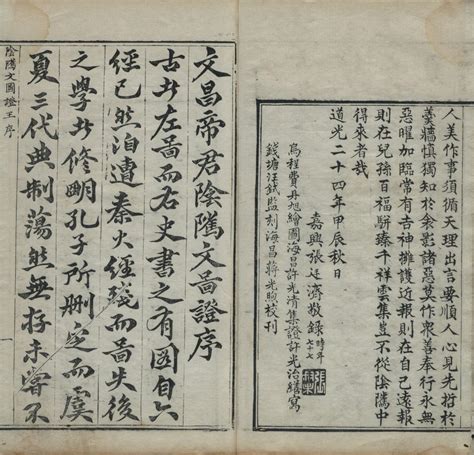 人美作事須循天理出言要順人心見先哲於
羹牆慎獨知於衾影諸惡莫作眾善奉行永無
惡曜加臨常有吉神擁護近報則在自己遠報
則在兒孫百福駢臻千祥雲集豈不從陰隲中
得來者哉
道光二十四年甲辰秋日
嘉興張廷濟敬錄 時年七十七
烏程費丹旭繪圖海昌許光清集證許光治繕寫
錢塘汪鉽監刻海昌蔣光煦校刊
文昌帝君陰隲文啚證序
古者左啚而右史書之有圖自六
經已然洎遭秦火經殘而啚失後
之學者修明孔子所刪定而虞
夏三代典制蕩然無存未嘗不
陰隲文圖證王序